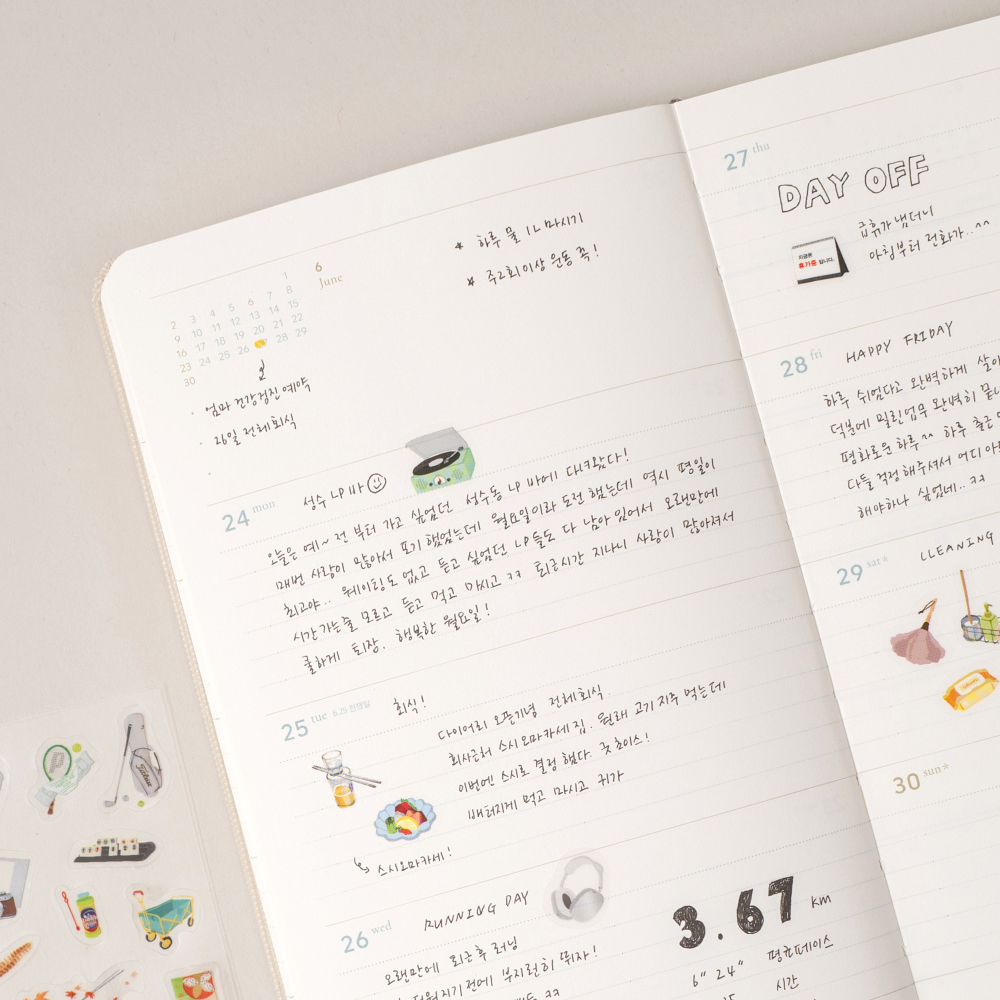 6
June
1
2 3 4 5 6 7 8
9 10 11 12 13 14 15
16 17 18 19 20 21 22
23 24 25 26 28 29
30
* 하루 물 1L 마시기
* 주2회이상 운동 쪽!
· 엄마 건강검진 예약
· 26일 전체회식
·
24 mon
성수 LP바
오늘은 예~ 전 부터 가고 싶었던 성수동 LP 바에 다녀왔다!
매번 사람이 많아서 포기 했었는데 월요일이라 도전 했는데 역시 평일이
최고야.. 웨이팅도 없고 듣고 싶었던 LP들도 다 남아 있어서 오랜만에
시간 가는줄 모르고 듣고 먹고 마시고 ㅋㅋ 퇴근시간 지나니 사람이 많아져서
쿨하게 퇴장. 행복한 월요일!
25 tue 6.25 전쟁일
회식!
다이어리 오픈기념 전체회식
회사근처 스시오마카세 집. 원래 고기 자주 먹는데
이번엔 스시로 결정 했다. 굿 초이스!
배터지게 먹고 마시고 귀가
스시오마카세!
26 wed
RUNNING DAY
오랜만에 퇴근후 러닝
더워지기 전에 부지런히 뛰자!
3.67 km
6" 24" 평균페이스
시간
27 thu
DAY OFF
급휴가 냈더니
아침부터 전화가..^^
지금은
휴가중 입니다.
28 fri
HAPPY FRIDAY
하루 쉬었다고 완벽하게
덕분에 밀린업무 완벽히
평화로운 하루^^ 하루 출근
다들 걱정 해주셔서 어디
해야하나 싶었네.. ㅋㅋ
29 sat
CLEANING
30 sun
Titleist